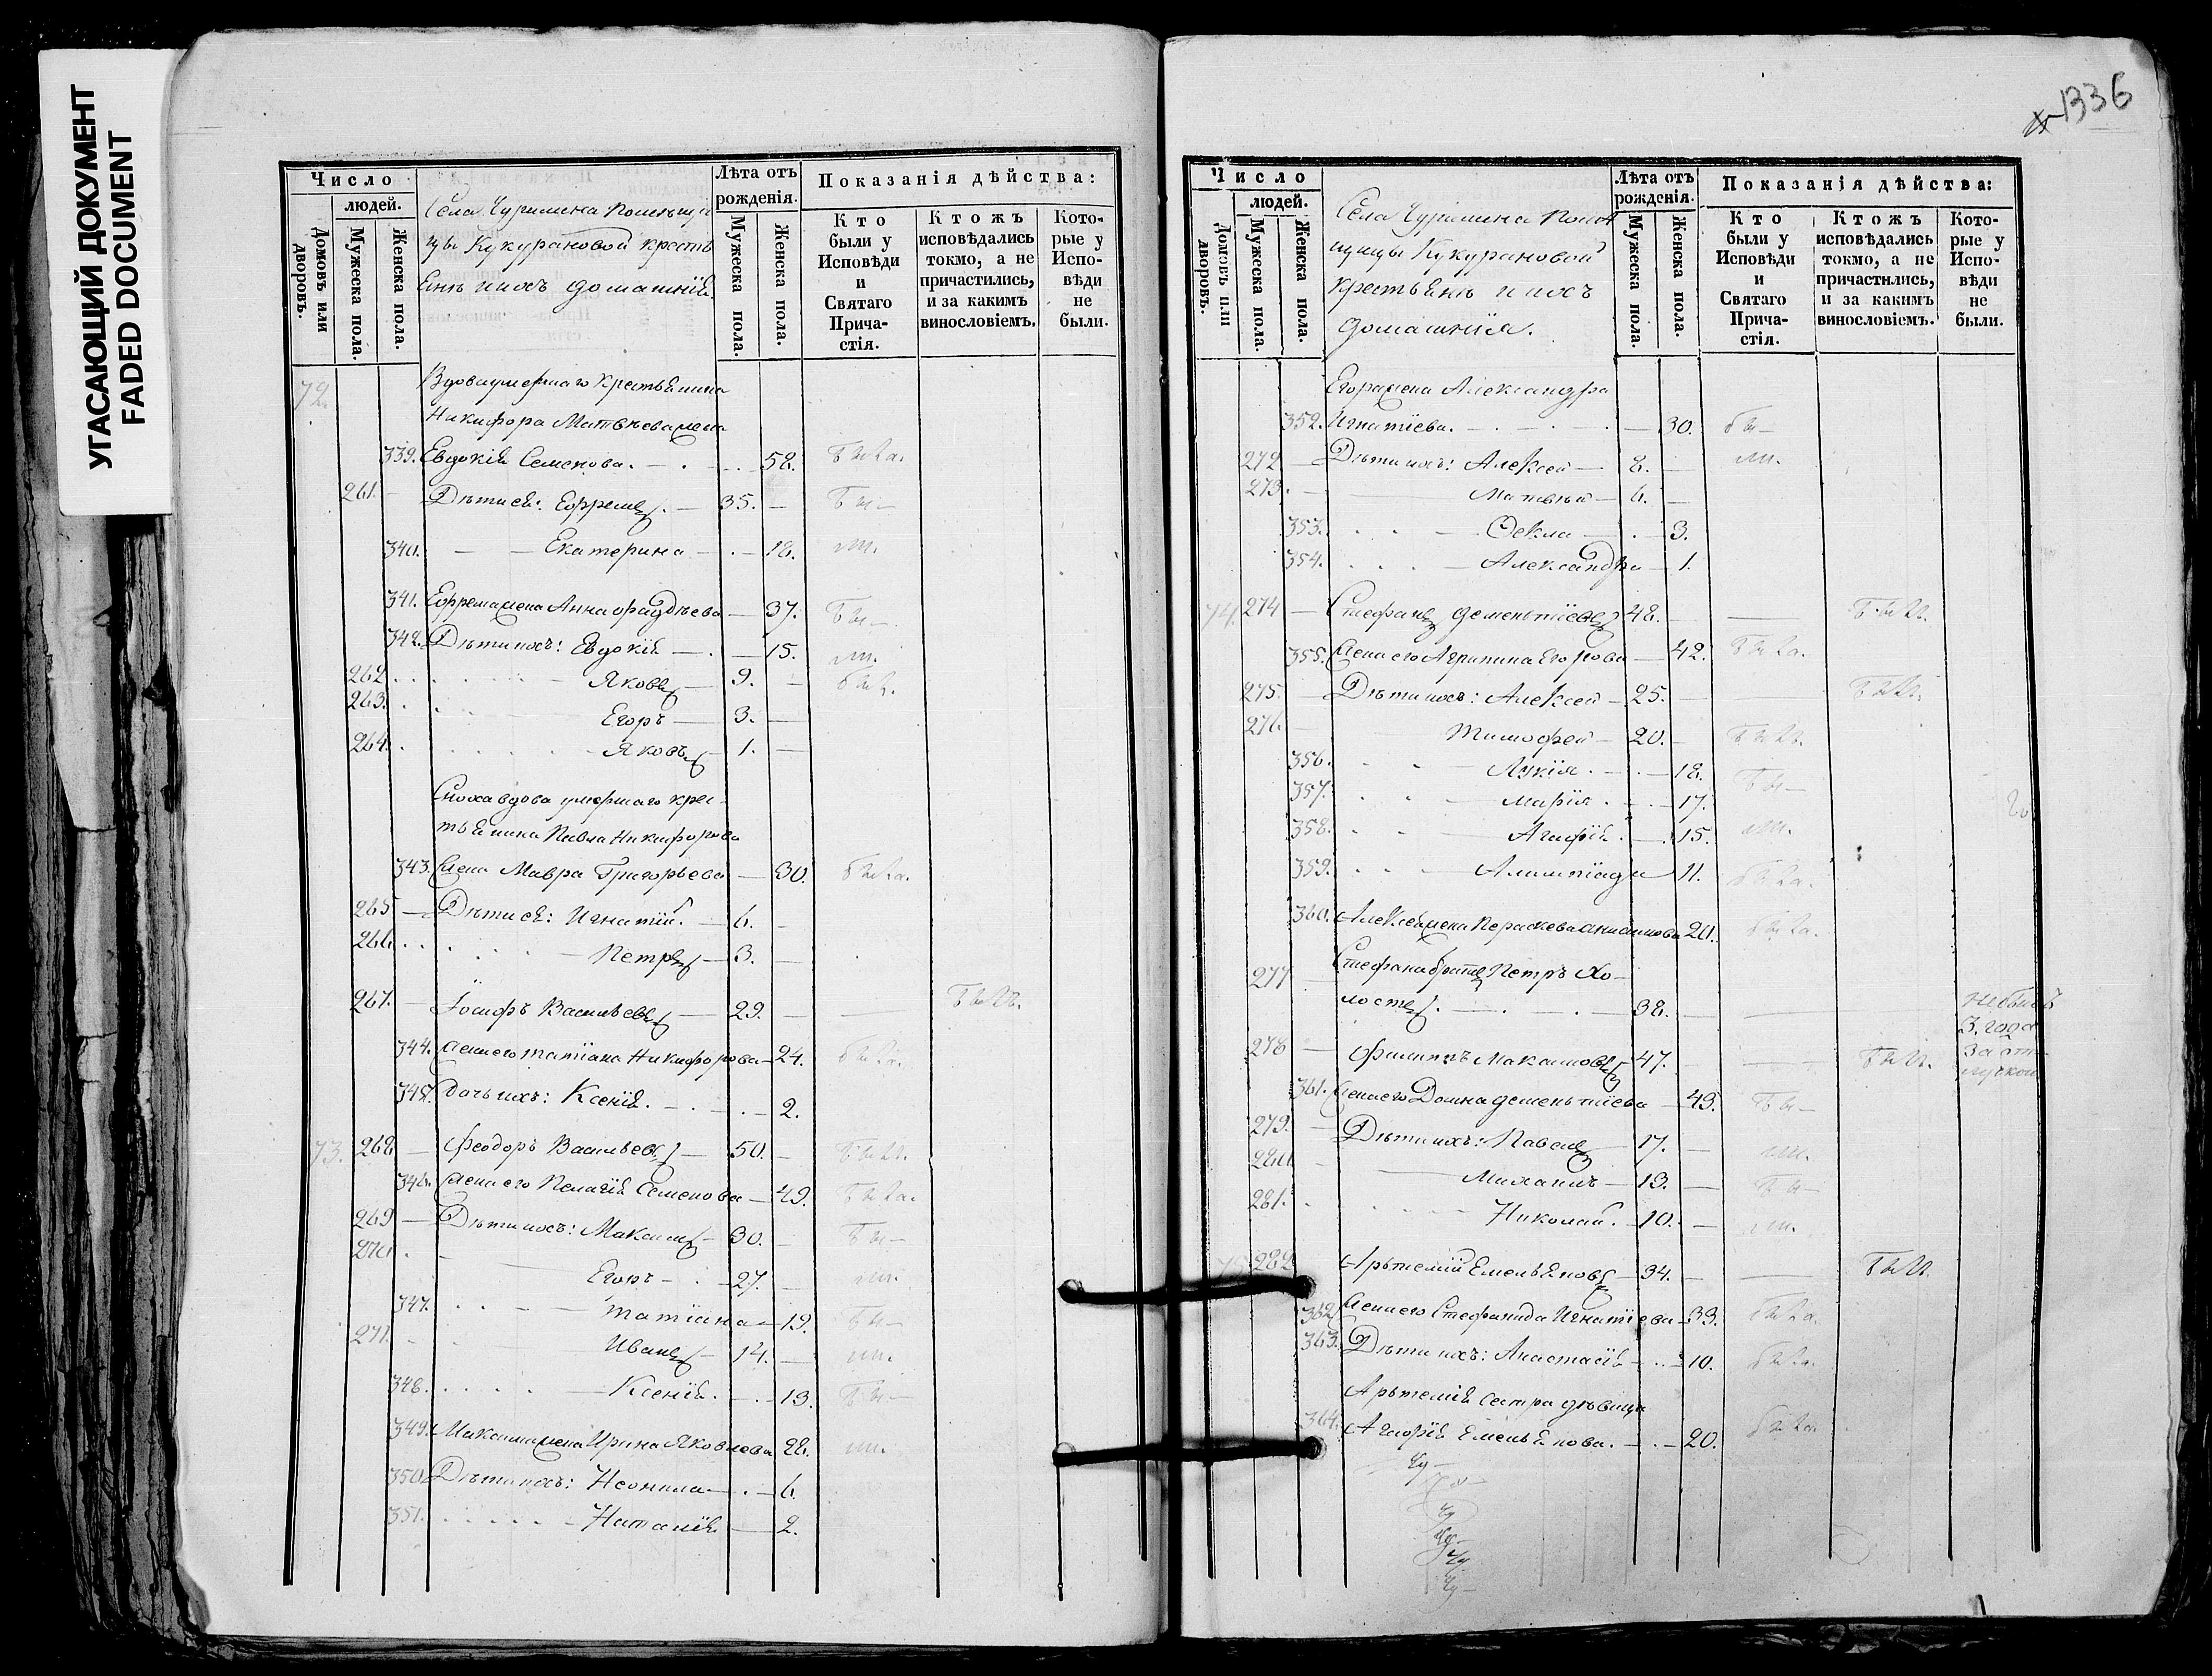 УГАСАЮЩИЙ ДОКУМЕНТ
FADED DOCUMENT
Число
людей.
Домовъ или дворовъ.
Мужеска пола.
Женска пола.
Села Чуримена помѣщи
цы Кукурановой крестья
Енѣ ихъ домашнія.
Лѣта отъ рожденія.
Мужеска пола.
Женска пола.
Показанія дѣйства:
Кто были у Исповѣди и Святаго Причастія.
Ктожъ исповѣдались токмо, а не причастились, и за какимъ винословіемъ.
Которые у Исповѣди не были.
72. Вдова умершаго крестьянина
Никифора Матвѣева жена
339. Евдокія Семенова. 58. была.
261. Дѣти ея: Ефремъ. 35. бы-
340. Екатерина 18. ли.
341. Ефрема жена Анна Фаддѣева 37. бы-
342. Дѣти ихъ: Евдокія 15. ли.
262. Яковъ 9. былъ.
263. Егоръ 3.
264. Яковъ 1.
Сноха вдова умершаго крес-
тьянина Павла Никифорова
343. Жена Мавра Григорьева 30. была.
265. Дѣти ея: Игнатій. 6.
266. Петръ 3.
267. Іосифъ Васильевъ 29. былъ.
344. Жена его Татіана Никифорова 24. была.
345. Дочь ихъ: Ксенія. 2.
73. 268. Феодоръ Васильевъ 50. былъ.
346. Жена его Пелагія Семенова 49. была.
269. Дѣти ихъ: Максимъ 30. бы-
270. Егоръ 27. ли.
347. Татіана 19. бы-
271. Иванъ 14. ли.
348. Ксенія. 13. бы-
349. Максима жена Ирина Яковлева 28. ли.
350. Дѣти ихъ: Неонила 6.
351. Наталія 2.
1336
Число
людей.
Домовъ или дворовъ.
Мужеска пола.
Женска пола.
Села Чуримина помѣ
щицы Кукурановой
крестьянѣ и ихъ
домашнія.
Лѣта отъ рожденія.
Мужеска пола.
Женска пола.
Показанія дѣйства:
Кто были у Исповѣди и Святаго Причастія.
Ктожъ исповѣдались токмо, а не причастились, и за какимъ винословіемъ.
Которые у Исповѣди не были.
Егора жена Александра
352. Игнатіева. 30. бы-
272 Дѣти ихъ: Алексей 8. ли.
273. Матвѣй 6.
353. Фекла 3.
354. Александра 1.
74. 274 Стефанъ Дементіевъ 48. былъ.
355. Жена его Агрипина Егорова 42. была.
275. Дѣти ихъ: Алексей 25. былъ.
276. Тимофей 20. былъ.
356. Лукія. 18. бы-
357. Марія. 17.
358. Агафія. 15. ли.
359. Алимпіада 11. была.
360. Алексея жена Параскева Анисимова 20. была.
Стефана братъ Петръ хо-
277 лостъ. 38. не былъ
3. года
за от-
лучкой
278 Филиппъ Максимовъ 47. былъ.
361. Жена его Домна Дементіева 49. бы-
279. Дѣти ихъ: Павелъ 17. ли.
280. Михаилъ 13. бы-
281. Николай. 10. ли.
75. 282 Артемій Емельяновъ 34. былъ.
362. Жена его Стефанида Игнатіева 33. была.
363. Дѣти ихъ: Анастасія 10. была.
Артемія сестра дѣвица
364. Агафія Емельянова. 20. была.